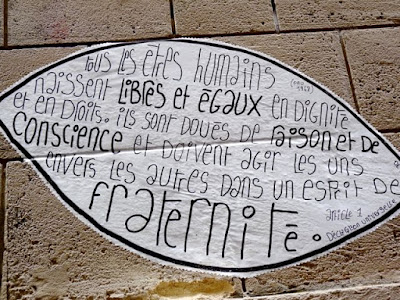 tous les êtres humains
(ONU 1948)
naissent LIBRES et ÉGAUX en dignité
et en DROITS. ils sont doués de raison et de
conscience et doivent agir les uns
envers les autres dans un esprit de
fraternité.
article 1
Déclaration universelle